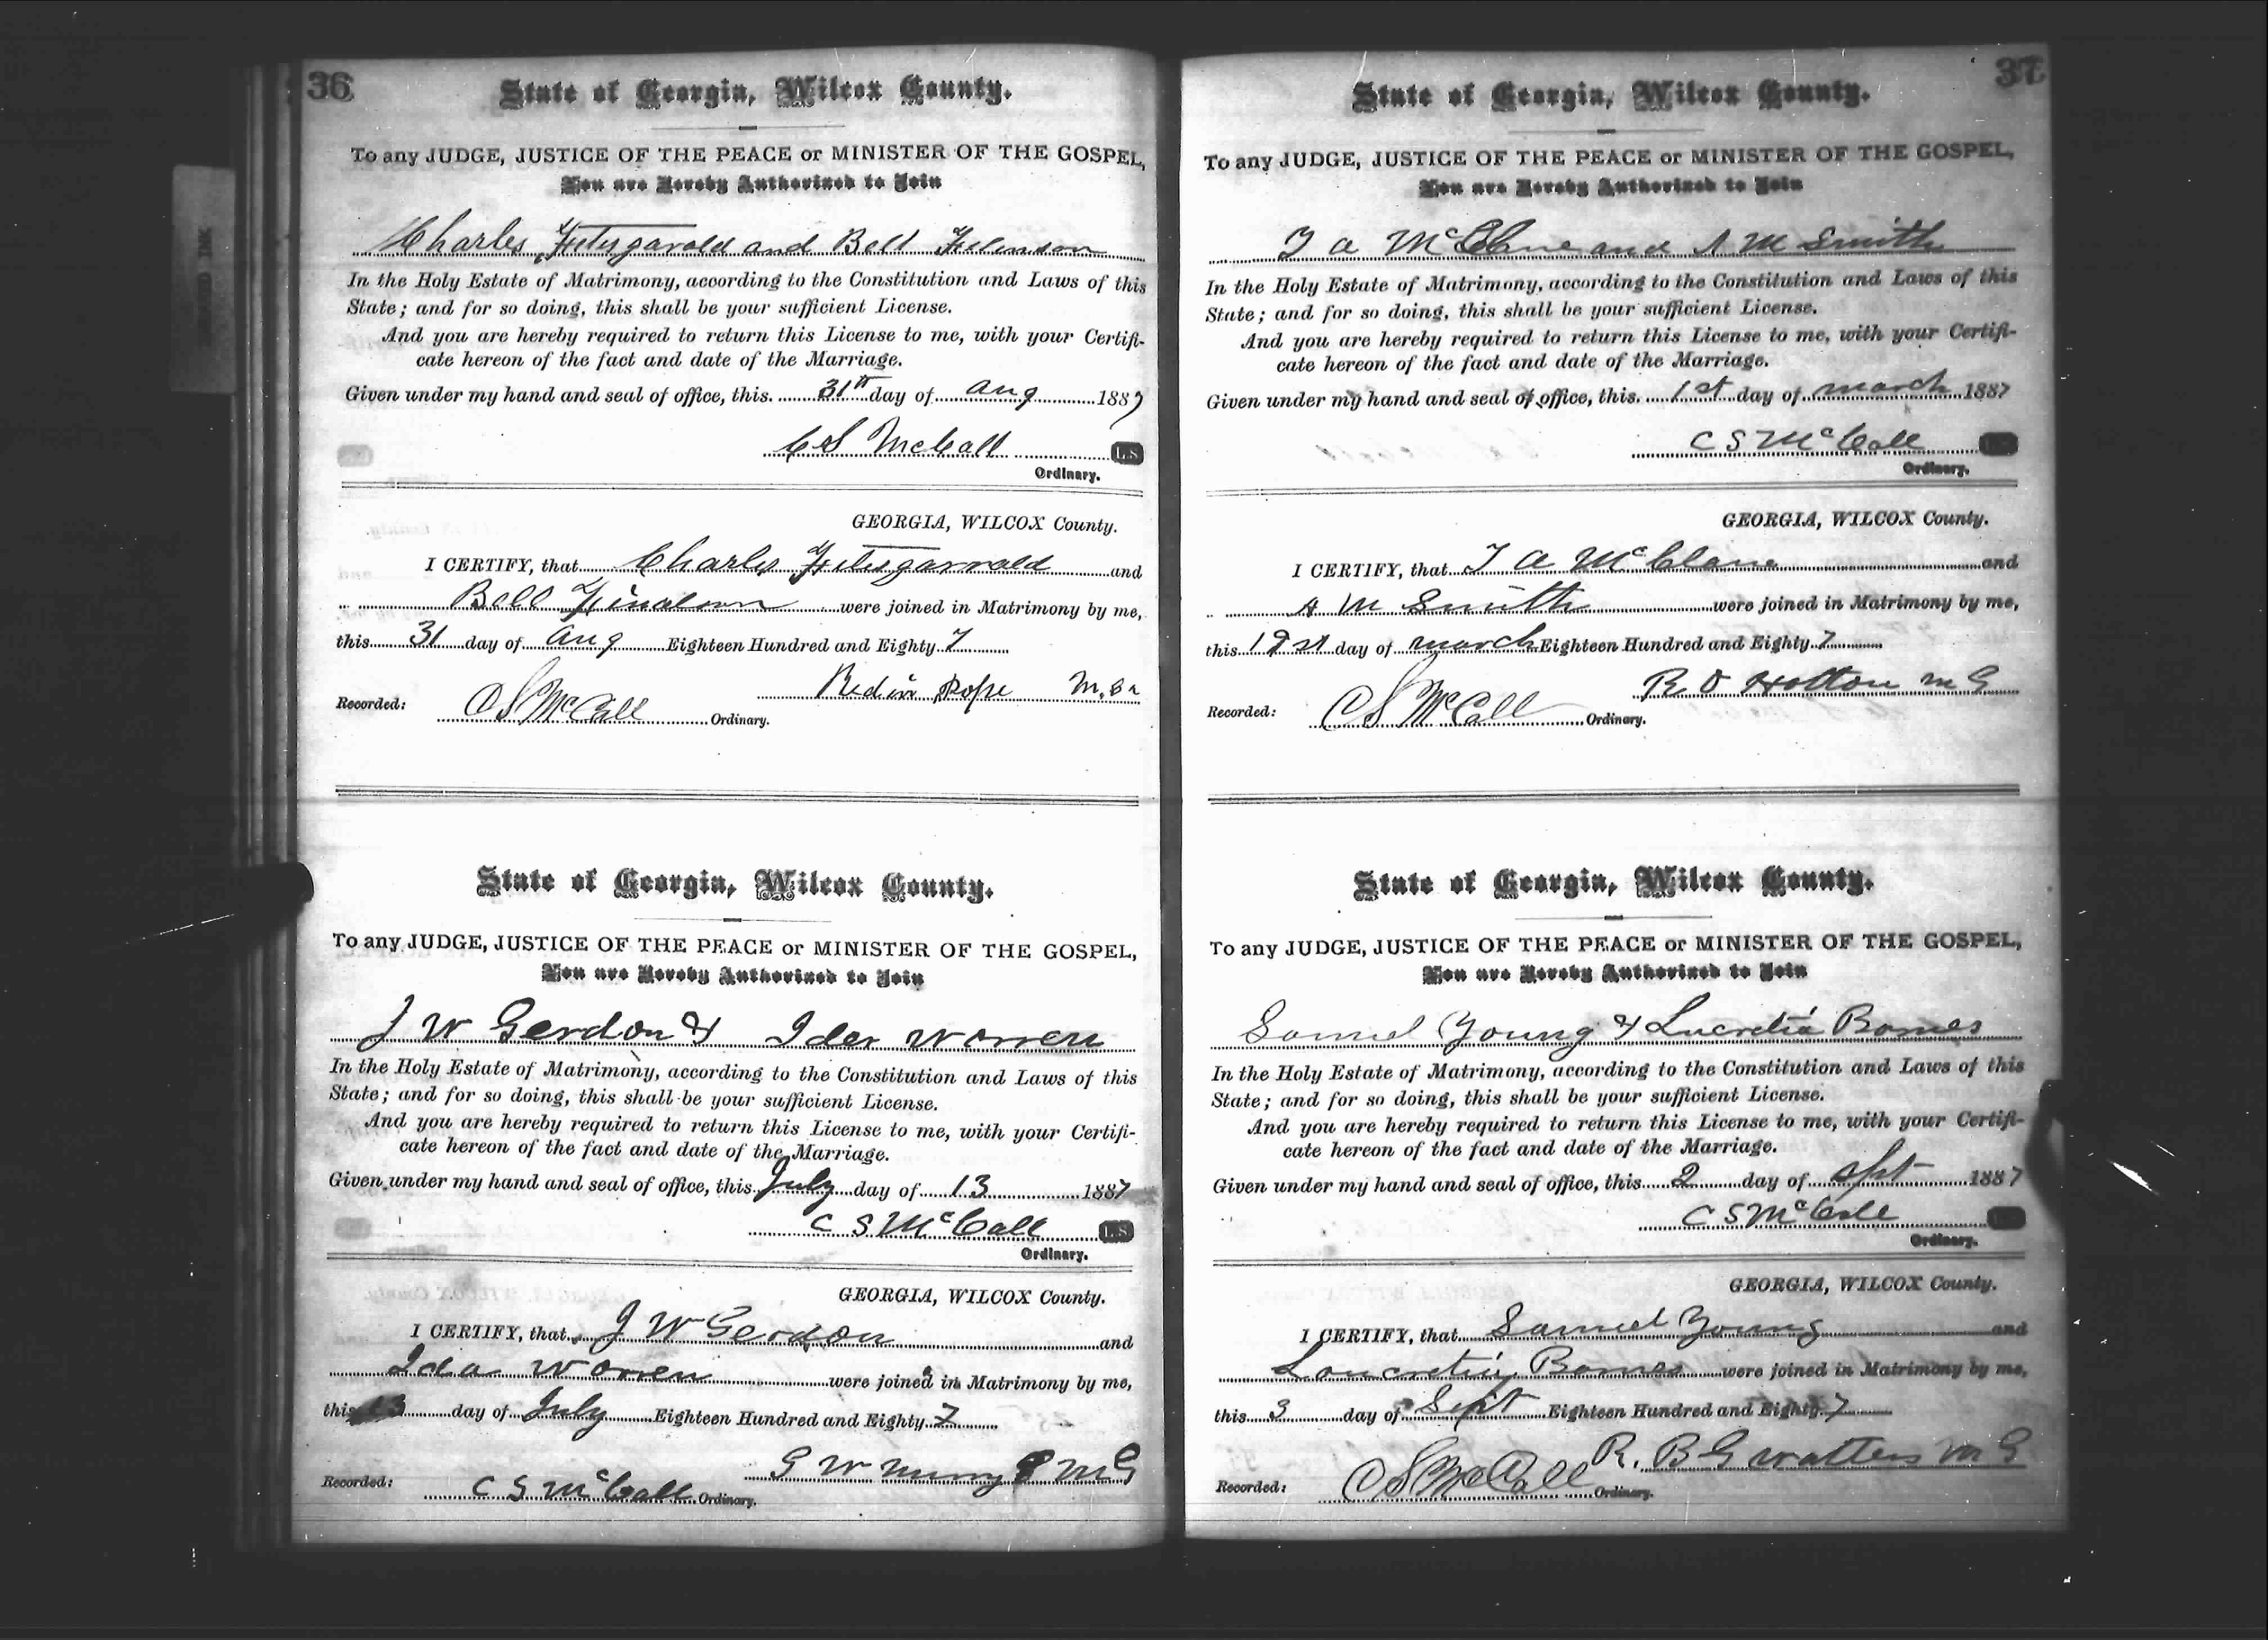 36
State of Georgia, Wilcox County.
To any JUDGE, JUSTICE OF THE PEACE or MINISTER OF THE GOSPEL,
You are Hereby Authorized to Join
Charles Fitsgarald and Bell
In the Holy Estate of Matrimony, according to the Constitution and Laws of this
State; and for so doing, this shall be your sufficient License.
And you are hereby required to return this License to me, with your Certifi-
cate hereon of the fact and date of the Marriage.
Given under my hand and seal of office, this 31th day of Aug 1887
CS McCall L.S
Ordinary.
GEORGIA, WILCOX County.
I CERTIFY, that Charles and
Bell were joined in Matrimony by me,
this 31 day of Aug Eighteen Hundred and Eighty 7
Redin Pope
Recorded: CS McCall Ordinary.
State of Georgia, Wilcox County.
To any JUDGE, JUSTICE OF THE PEACE or MINISTER OF THE GOSPEL,
You are Hereby Authorized to Join
J W Gerdon & Ida Warren
In the Holy Estate of Matrimony, according to the Constitution and Laws of this
State; and for so doing, this shall be your sufficient License.
And you are hereby required to return this License to me, with your Certifi-
cate hereon of the fact and date of the Marriage.
Given under my hand and seal of office, this July day of 13 1887
C S McCall L.S
Ordinary.
GEORGIA, WILCOX County.
I CERTIFY, that J W Gerdon and
Ida Warren were joined in Matrimony by me,
this 13 day of July Eighteen Hundred and Eighty 7
G W M G
Recorded: C S McCall Ordinary.
37
State of Georgia, Wilcox County.
To any JUDGE, JUSTICE OF THE PEACE or MINISTER OF THE GOSPEL,
You are Hereby Authorized to Join
J A McClane and A M Smith
In the Holy Estate of Matrimony, according to the Constitution and Laws of this
State; and for so doing, this shall be your sufficient License.
And you are hereby required to return this License to me, with your Certifi-
cate hereon of the fact and date of the Marriage.
Given under my hand and seal of office, this 1st day of March 1887
C S McCall
Ordinary.
GEORGIA, WILCOX County.
I CERTIFY, that J A McClane and
A M Smith were joined in Matrimony by me,
this day of March Eighteen Hundred and Eighty 7
R O Holton M G
Recorded: CS McCall Ordinary.
State of Georgia, Wilcox County.
To any JUDGE, JUSTICE OF THE PEACE or MINISTER OF THE GOSPEL,
You are Hereby Authorized to Join
Samuel Young & Lucretia Barnes
In the Holy Estate of Matrimony, according to the Constitution and Laws of this
State; and for so doing, this shall be your sufficient License.
And you are hereby required to return this License to me, with your Certifi-
cate hereon of the fact and date of the Marriage.
Given under my hand and seal of office, this 2 day of 1887
C S McCall
Ordinary.
GEORGIA, WILCOX County.
I CERTIFY, that Samuel Young and
Loucretia Barnes were joined in Matrimony by me,
this 3 day of Sept Eighteen Hundred and Eighty 7
R. B G Watters M G
Recorded: CS McCall Ordinary.